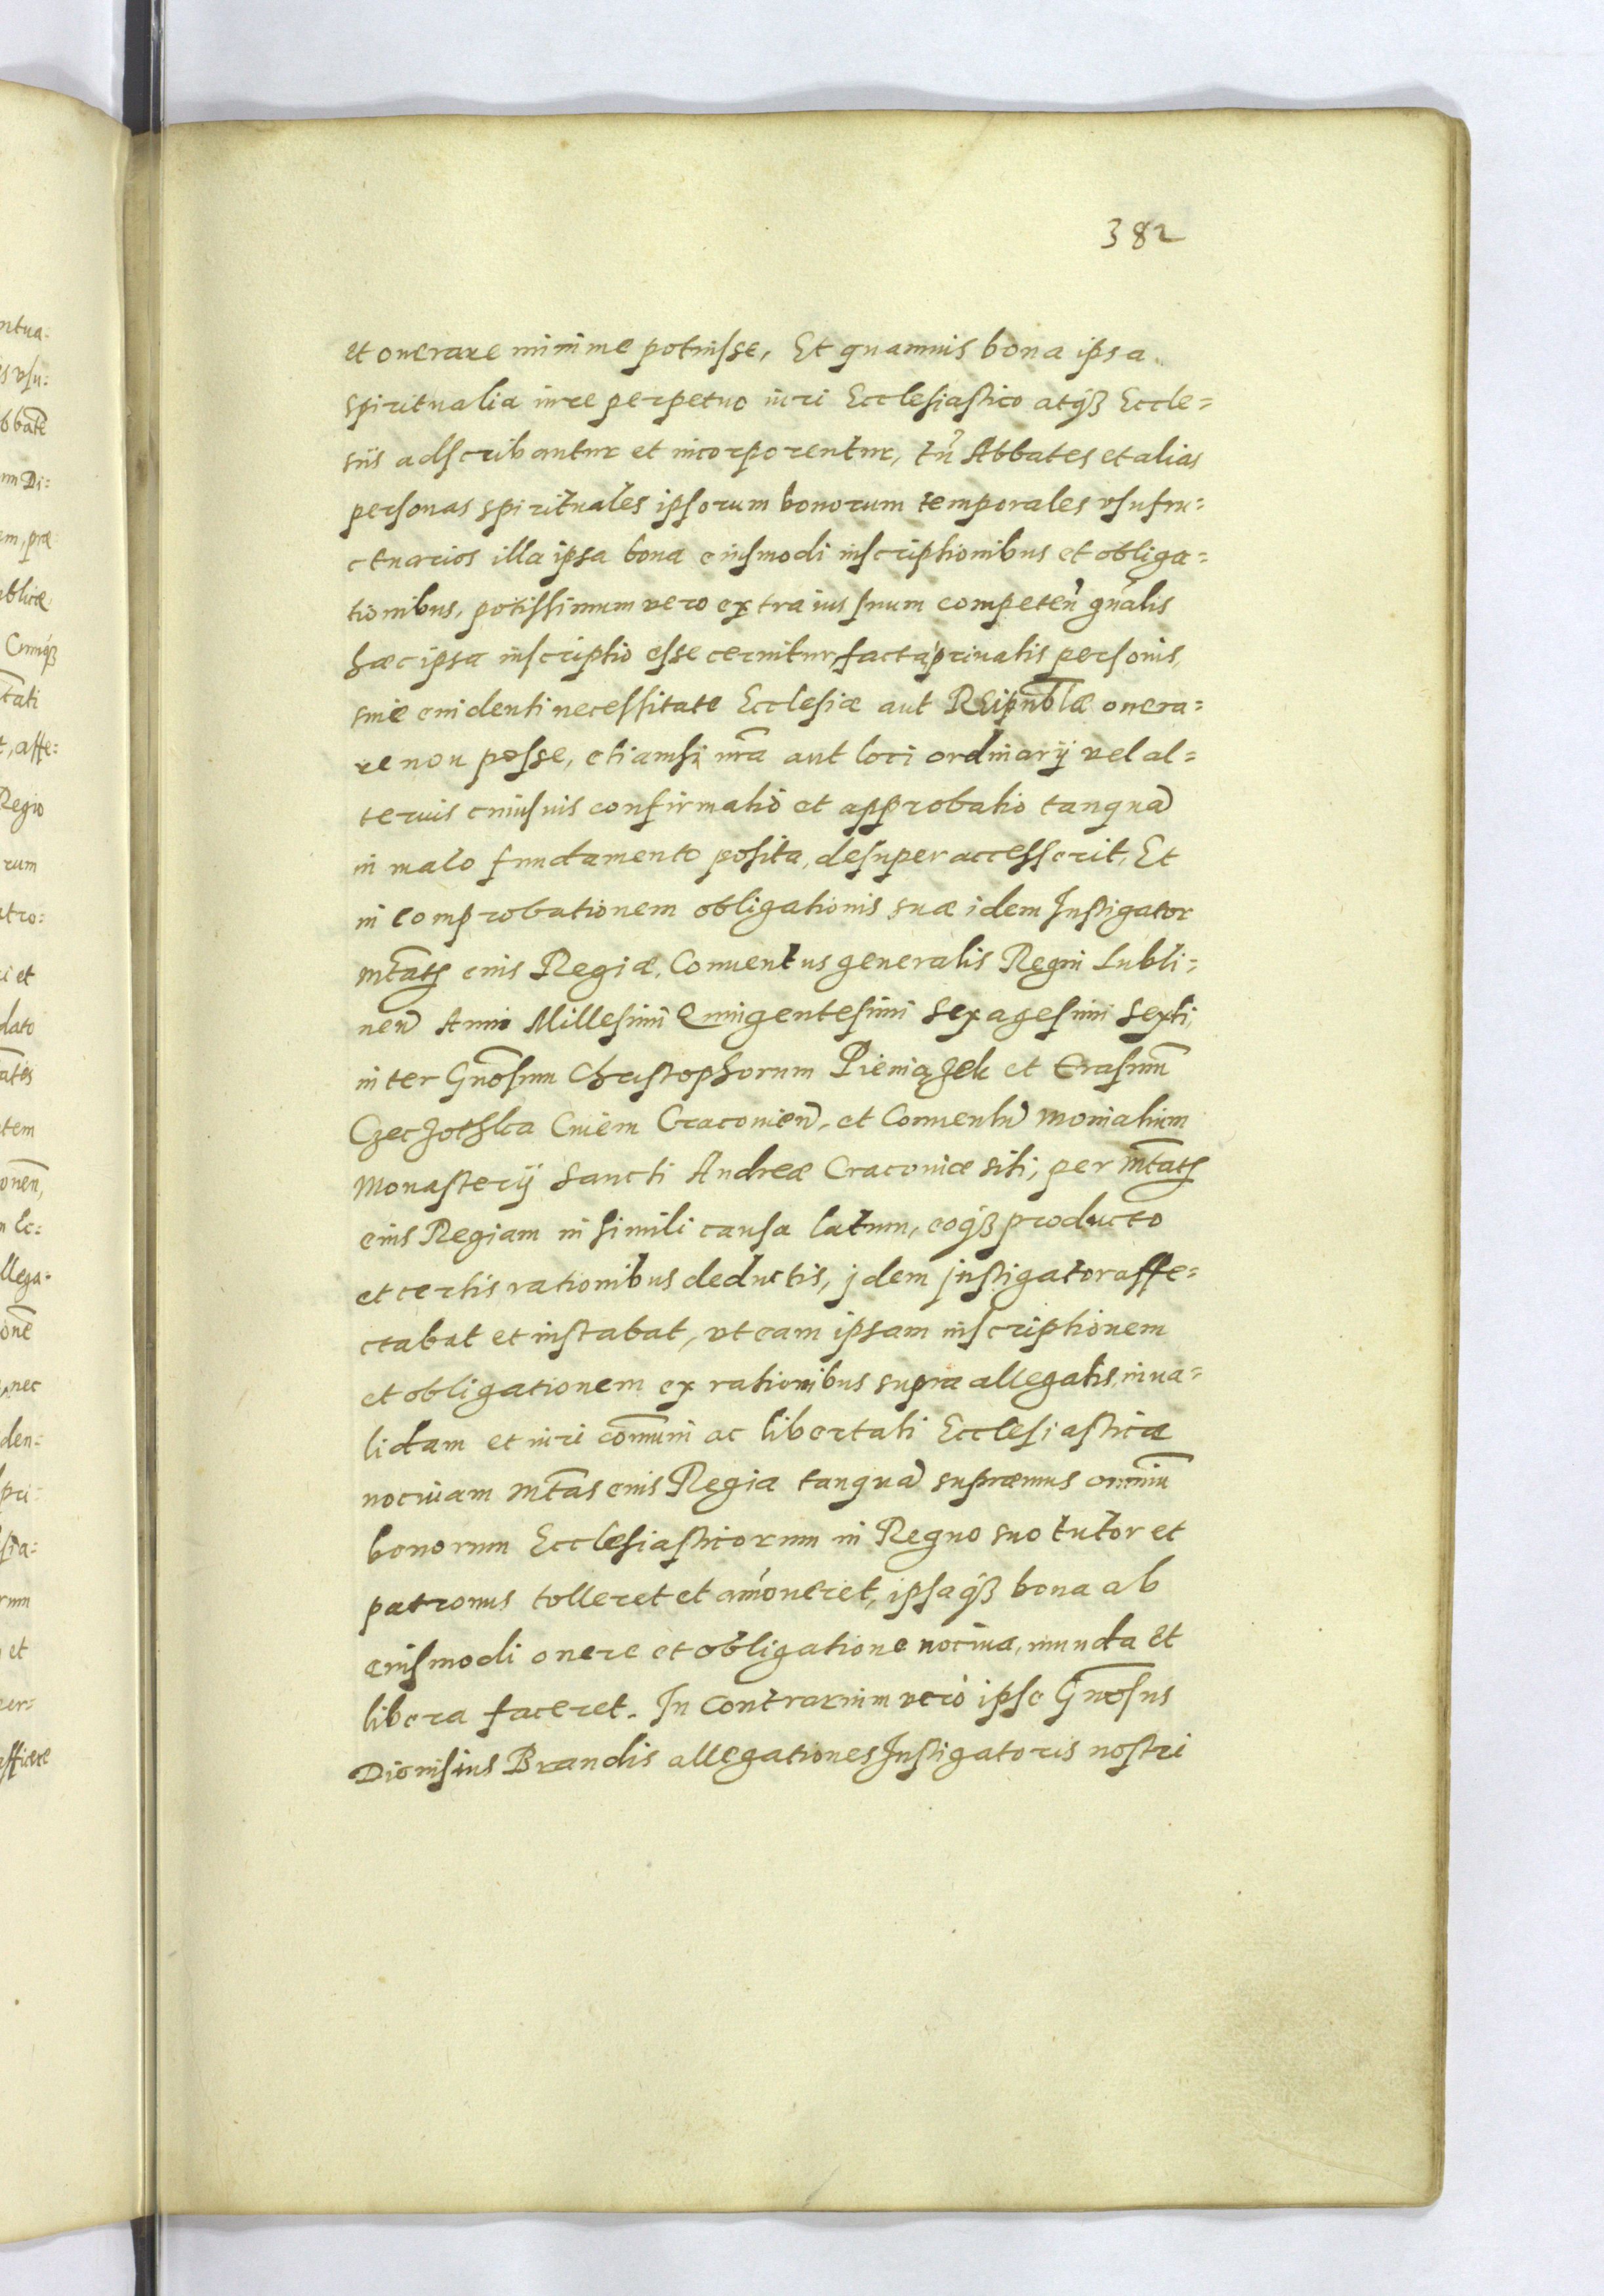 382
et onerare minime potuisse, Et quamuis bona ipsa
spiritualia iure perpetuo iuri Ecclesiastico atqȝ Eccle=
siis adscribantur et incorporentur, tñ Abbates et alias
personas spirituales ipsorum bonorum temporales vsufru=
ctuarios illa ipsa bona eiusmodi inscriptionibus et obliga=
tionibus, potissimum vero extra ius suum competeñ gñalis
hæc ipsa inscriptio esse cernitur, facta priuatis personis,
sine euidenti necessitate Ecclesiæ aut Reipublæ onera=
re non posse, etiamsi nr̃a aut loci ordinarij vel al=
terius cuiusuis confirmatio et approbatio tanquã
in malo fundamento posita, desuper accesserit, Et
in comprobationem obligationis suæ idem Instigator
mt̃atis eius Regiæ, Conuentus generalis Regni Lubli=
neñ Anni Millesimi Quingentesimi sexagesimi sexti,
inter Gnõsum Christophorum Pieniąȝek et Erasmũ
Czeczothka Ciuem Cracouieñ, et Conuentũ monialium
Monasterij Sancti Andreæ Cracouiæ siti, per mt̃atẽ
eius Regiam in simili causa latum, eoqȝ producto
et certis rationibus deductis, jdem jnstigator affe=
ctabat et instabat, vt eam ipsam inscriptionem
et obligationem ex rationibus supra allegatis, inua=
lidam et iuri com̃uni ac libertati Ecclesiasticæ
nociuam mt̃as eius Regia tanquã supræmus omniũ
bonorum Ecclesiasticorum in Regno suo tutor et
patronus tolleret et amoueret, ipsaqȝ bona ab
eiusmodi onere et obligatione nociua, munda et
libera faceret. In contrarium verò ipse Gnõsus
Dionisius Brandis allegationes Instigatoris nostri